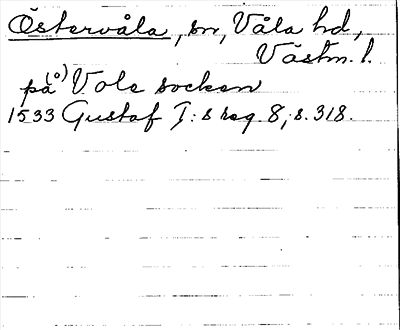 Östervåla, sn, Våla hd,
Västm. l.
på(°) Vole socken
1533 Gustaf I:s reg. 8, s. 318.